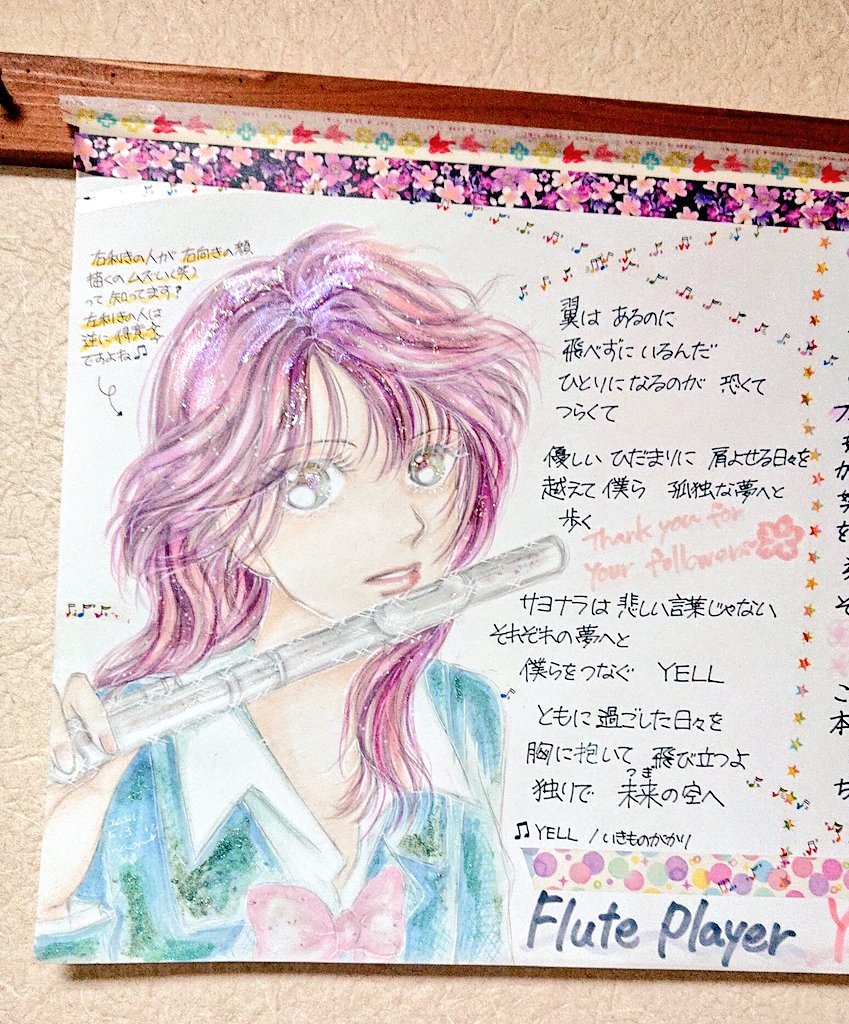 右利きの人が右向きの顔
描くのムズい(笑)
って知ってます?
左利きの人は
逆に得意
ですよね♫
翼は あるのに
飛べずにいるんだ
ひとりになるのが 恐くて
つらくて
優しい ひだまりに 肩よせる日々を
越えて 僕ら 孤独な夢へと
歩く
Thank you for
your followers
サヨナラは 悲しい言葉じゃない
それぞれの夢へと
僕らをつなぐ YELL
ともに過ごした日々を
胸に抱いて 飛び立つよ
独りで 未来の空へ
つぎ
♫ YELL / いきものがかり
Flute Player